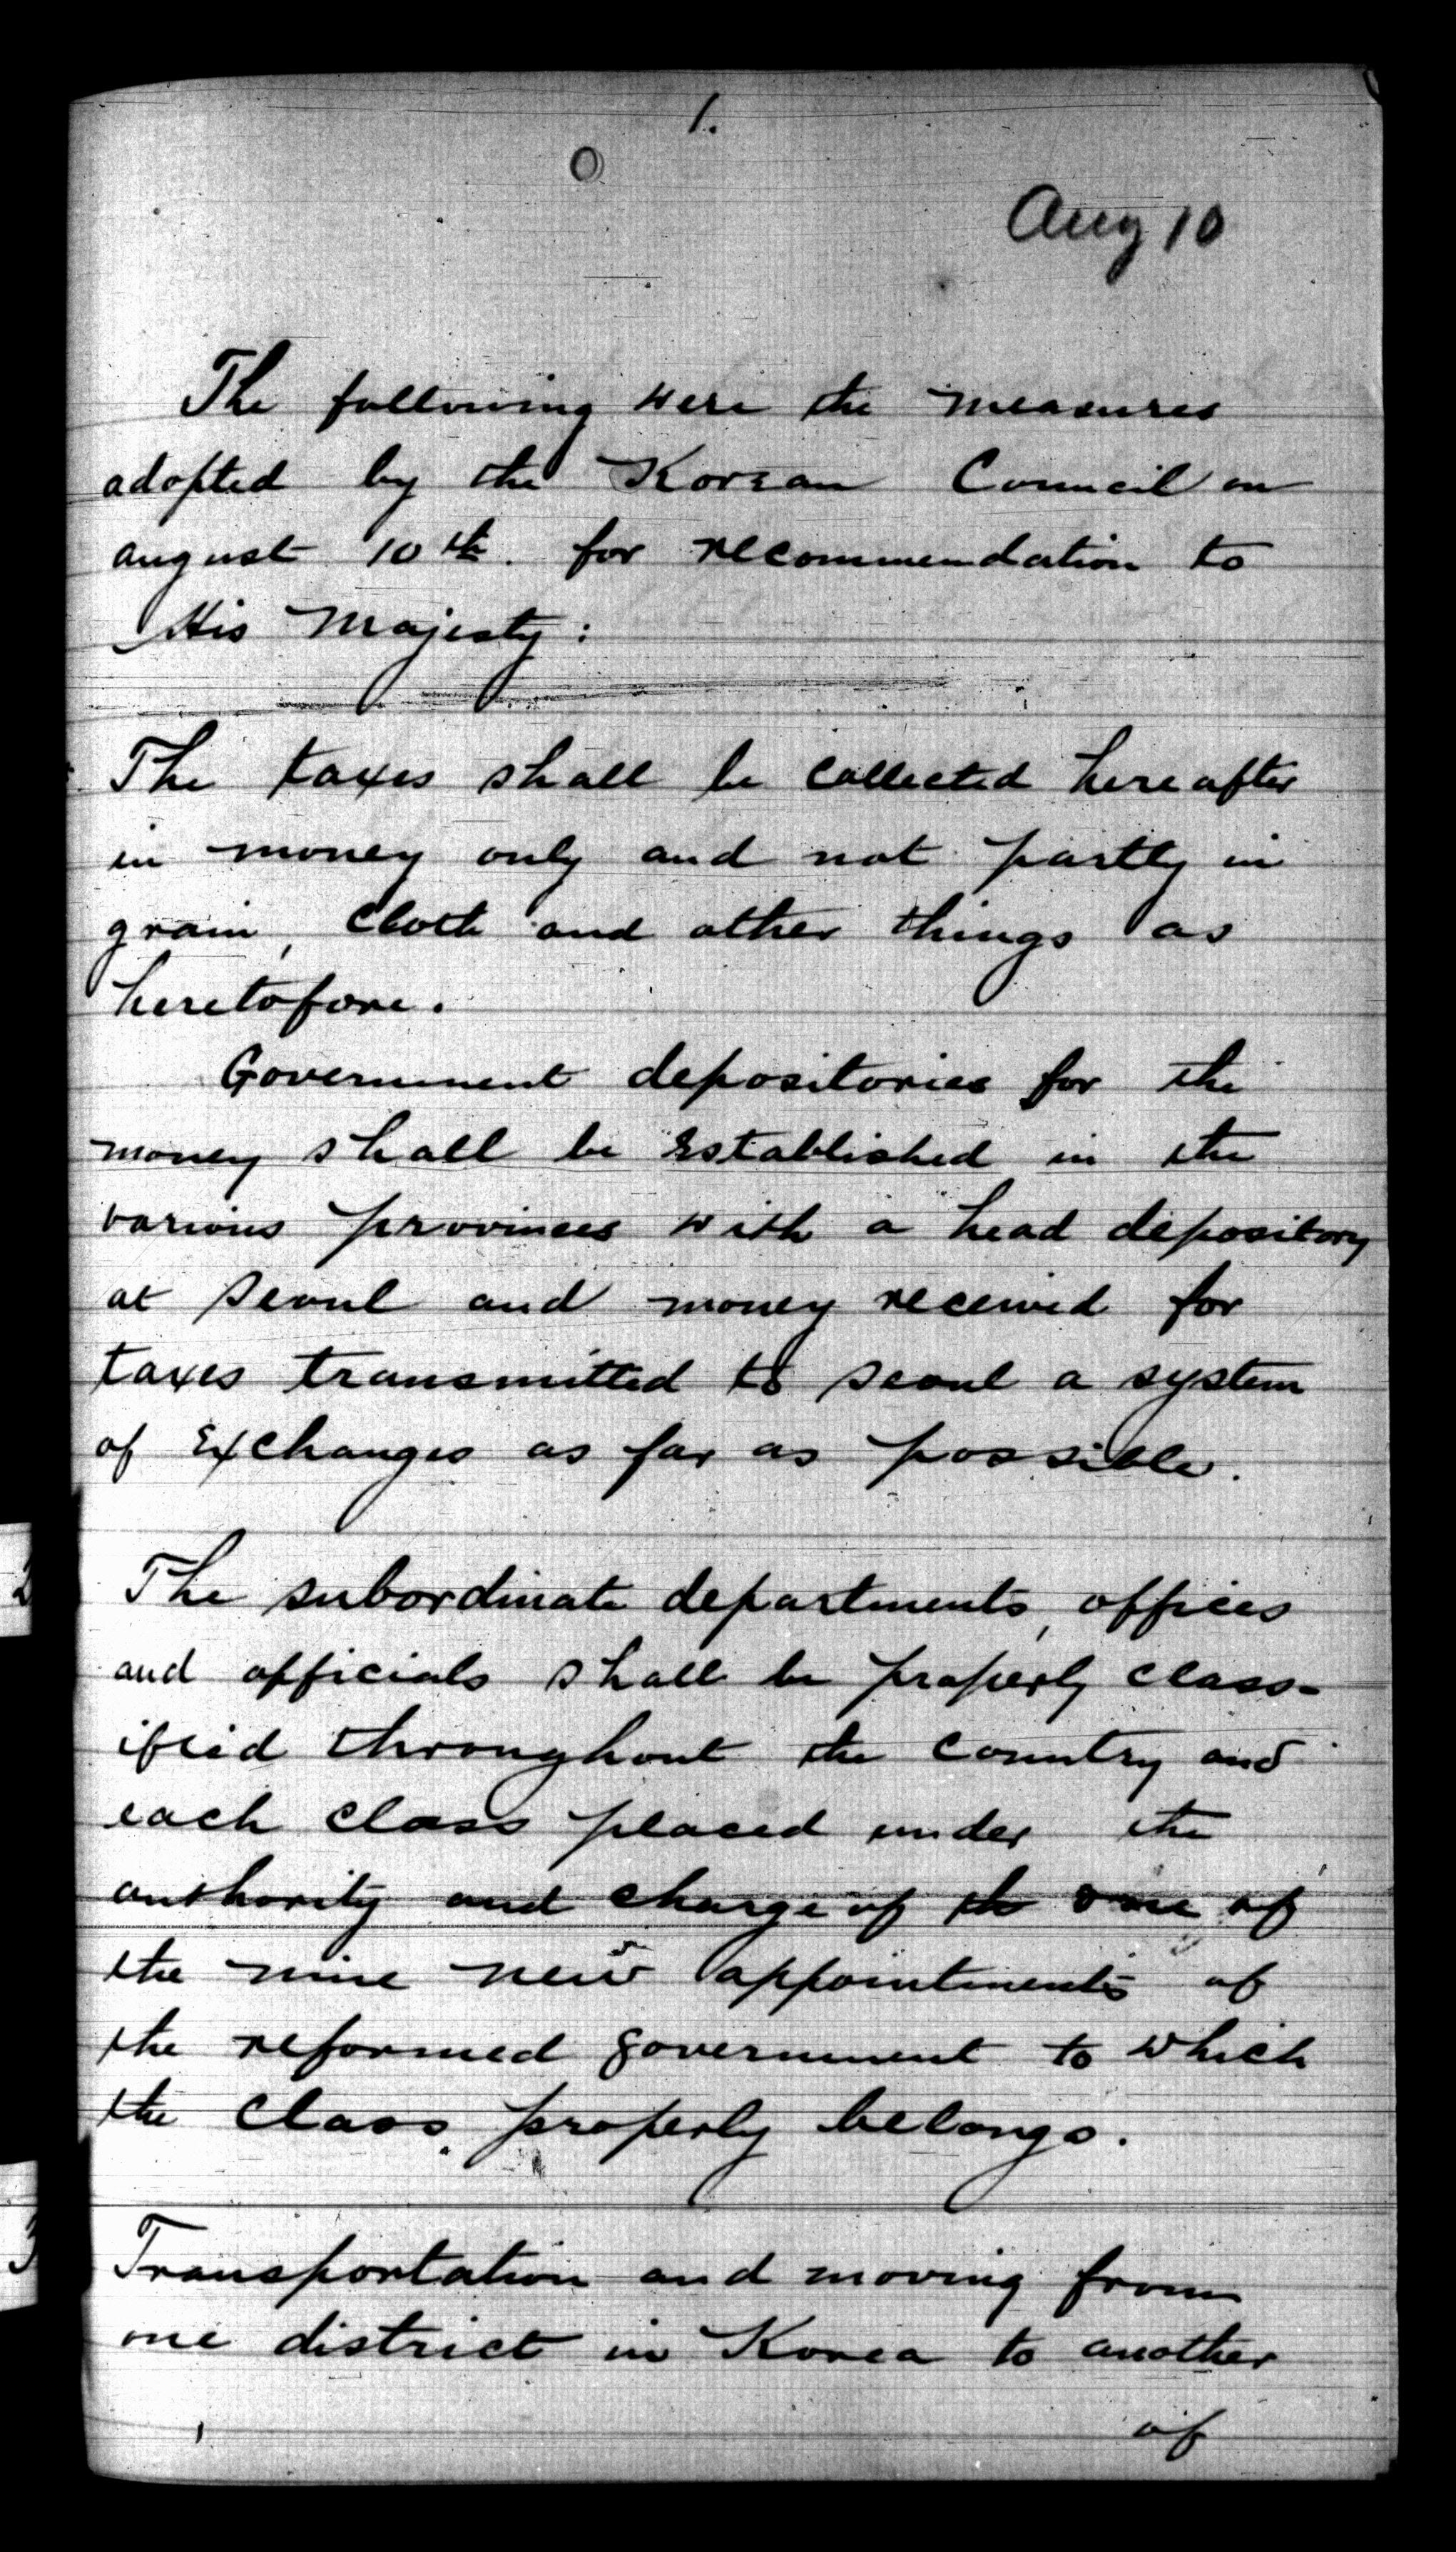 1.
Aug 10
The following were the measures
adopted by the Korean Council on
august 10th. for recommendation to
His Majesty:
The taxes shall be collected hereafter
in money only and not partly in
grain, cloth and other things as
heretofore.
Government depositories for the
money shall be established in the
various provinces with a head depository
at Seoul and money received for
taxes transmitted to Seoul a system
of exchanges as far as possible.
The subordinate departments, offices
and officials shall be properly class-
ified throughout the country and
each class placed under the
authority and charge of the one of
the nine new appointments of
the reformed government to which
the class properly belongs.
Transportation and moving from
one district in Korea to another
of